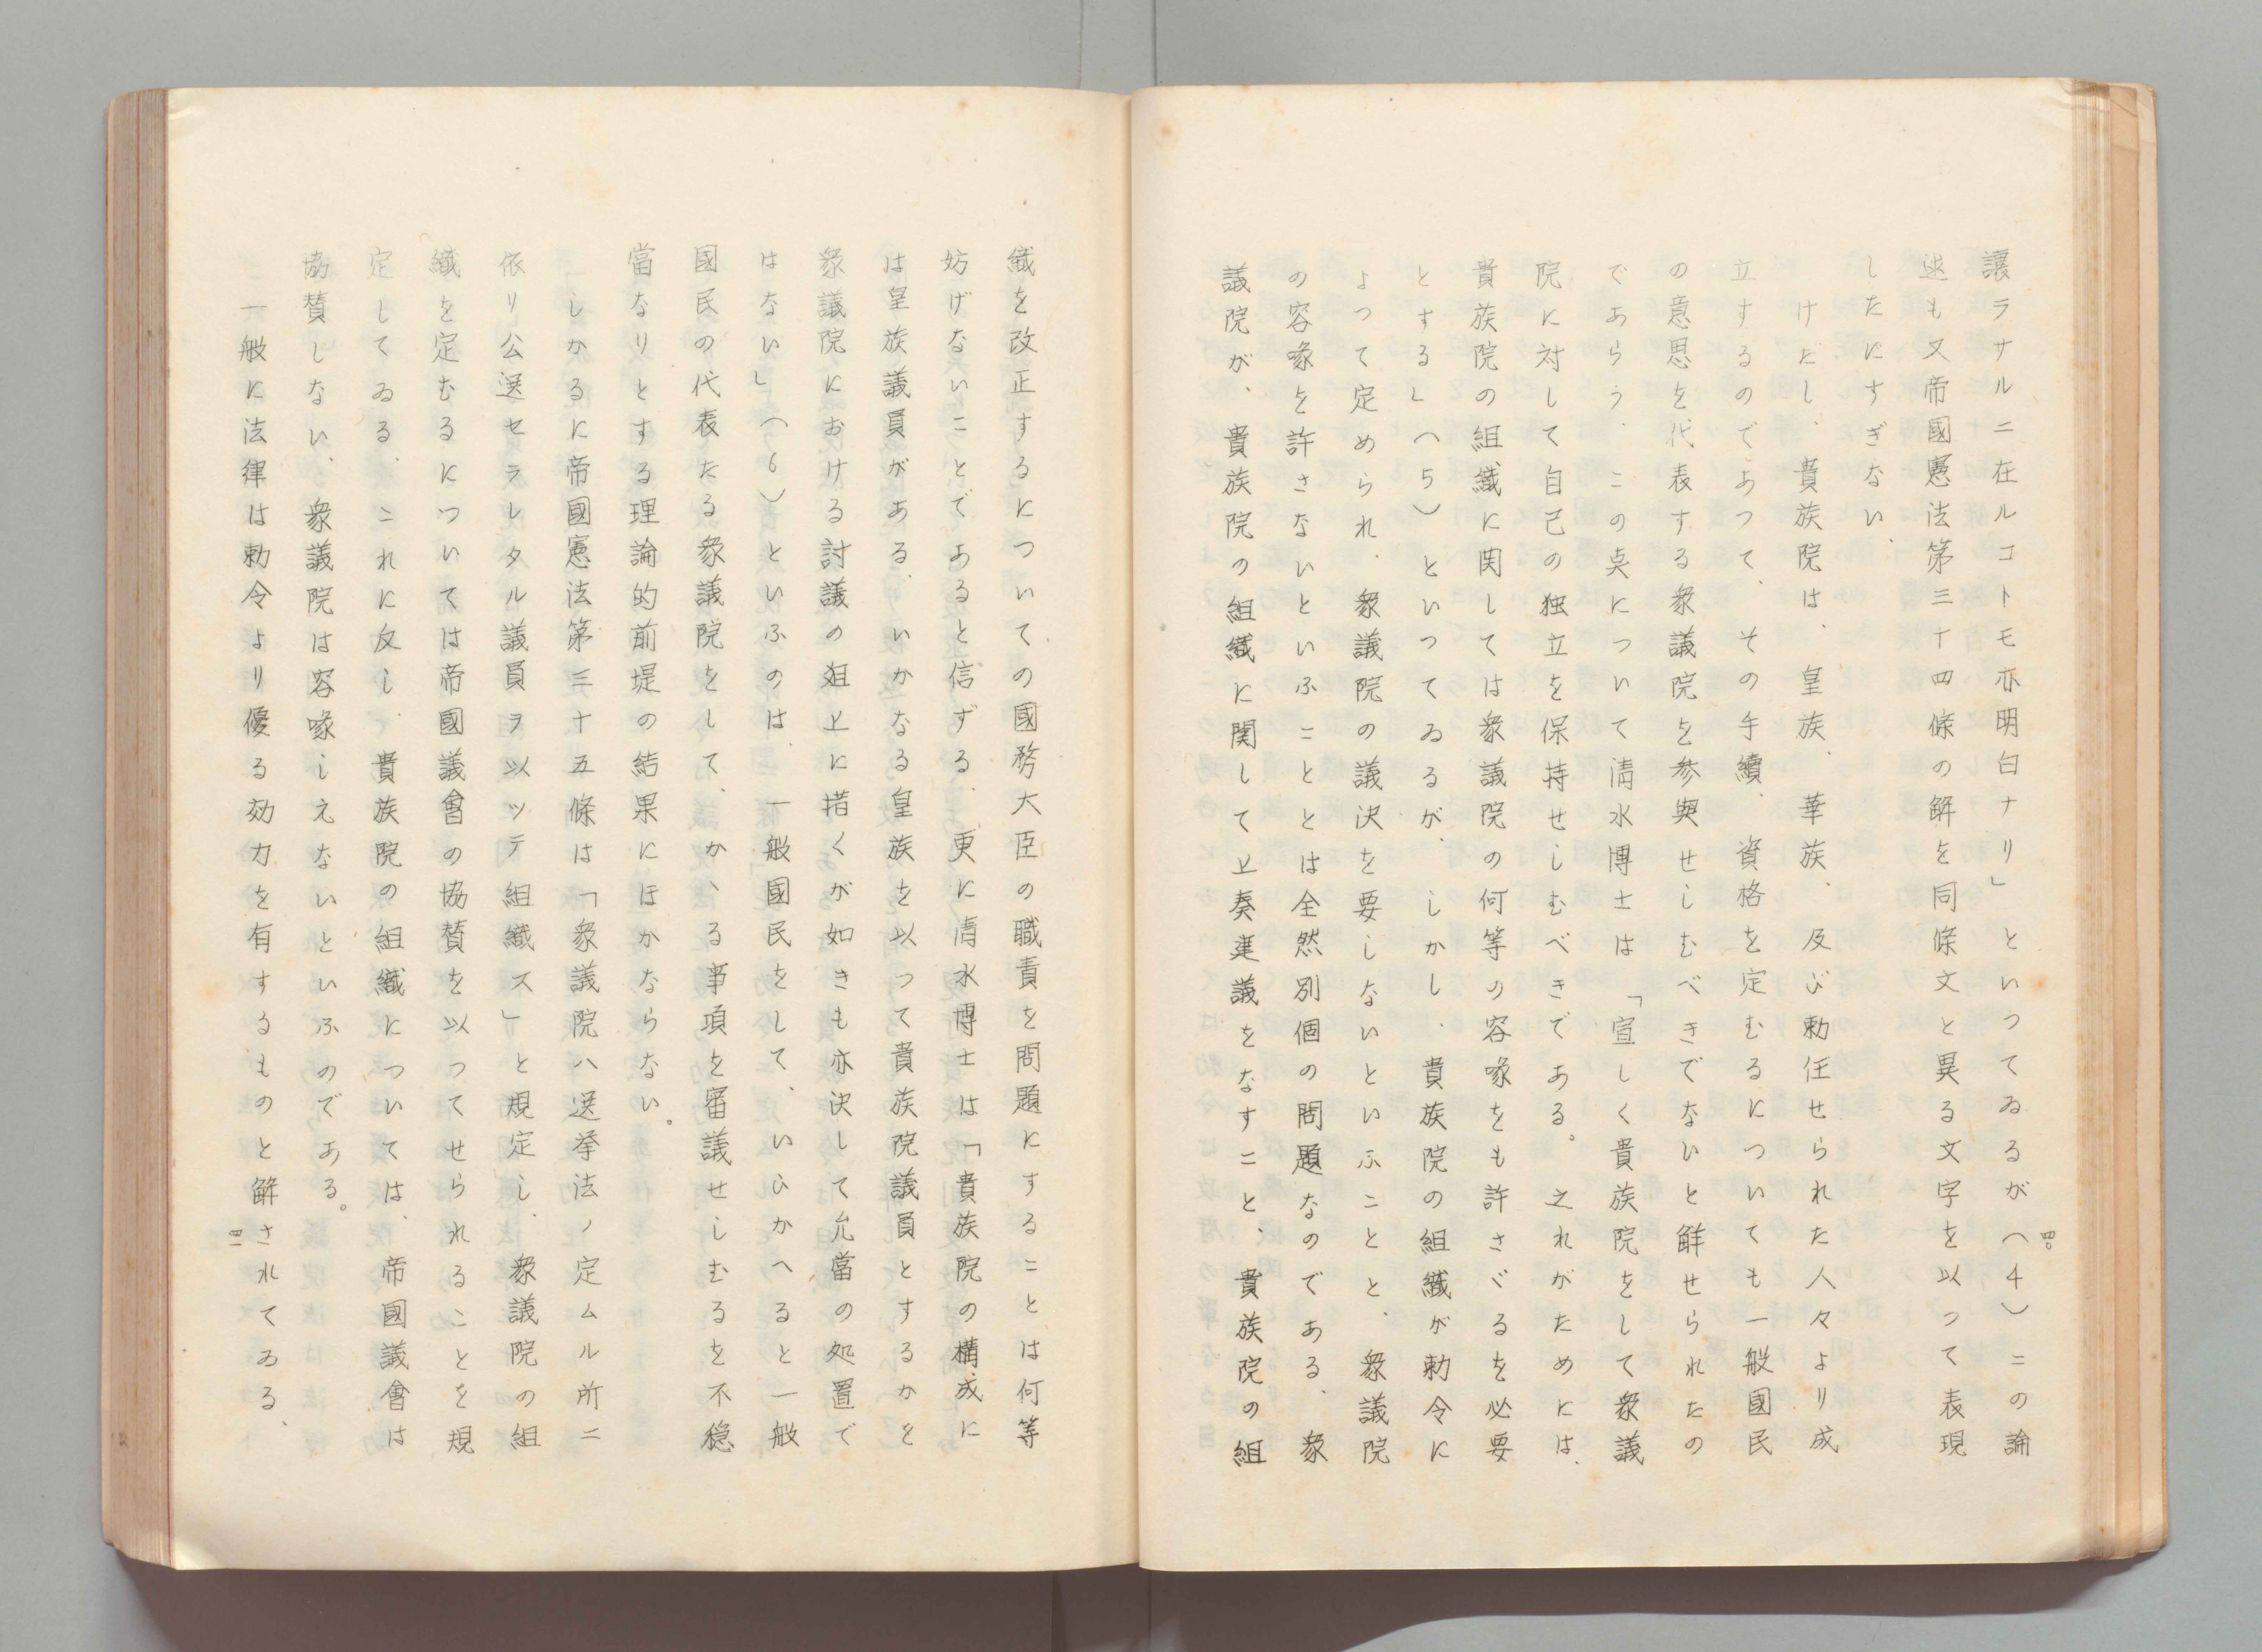 譲ラサルニ在ルコトモ亦明白ナリ」といつてゐるが（４）この論
述も又帝國憲法第三十四條の解を同條文と異る文字を以つて表現
したにすぎない、
けだし、貴族院は、皇族、華族、及び勅任せられた人々より成
立するのであつて、その手續、資格を定むるについても一般國民
の意思を代表する衆議院を参與せしむべきでないと解せられたの
であらう、この点について淸水博士は「宣しく貴族院をして衆議
院に対して自己の独立を保持せしむべきである。之れがためには、
貴族院の組織に関しては衆議院の何等の容喙をも許さゞるを必要
とする」（５）といつてゐるが、しかし、貴族院の組織が勅令に
よつて定められ、衆議院の議決を要しないといふことと、衆議院
の容喙を許さないといふこととは全然別個の問題なのである、衆
議院が、貴族院の組織に関して上奏建議をなすこと、貴族院の組
四〇
織を改正するについての國務大臣の職責を問題にすることは何等
妨げないことであると信ずる、更に淸水博士は「貴族院の構成に
は皇族議員がある、いかなる皇族を以つて貴族院議員とするかを
衆議院における討議の俎上に措くが如きも亦決して允當の処置で
はない」（６）といふのは、一般國民をして、いひかへると一般
國民の代表たる衆議院をして、かゝる事項を審議せしむるを不穏
當なりとする理論的前堤の結果にほかならない。
しかるに帝國憲法第三十五條は「衆議院ハ選挙法ノ定ムル所ニ
依リ公選セラレタル議員ヲ以ツテ組織ス」と規定し、衆議院の組
織を定むるについては帝國議會の協賛を以つてせられることを規
定してゐる、これに反し、貴族院の組織については、帝國議會は
協賛しない、衆議院は容喙しえないといふのである。
一般に法律は勅令より優る効力を有するものと解されてゐる、
四一